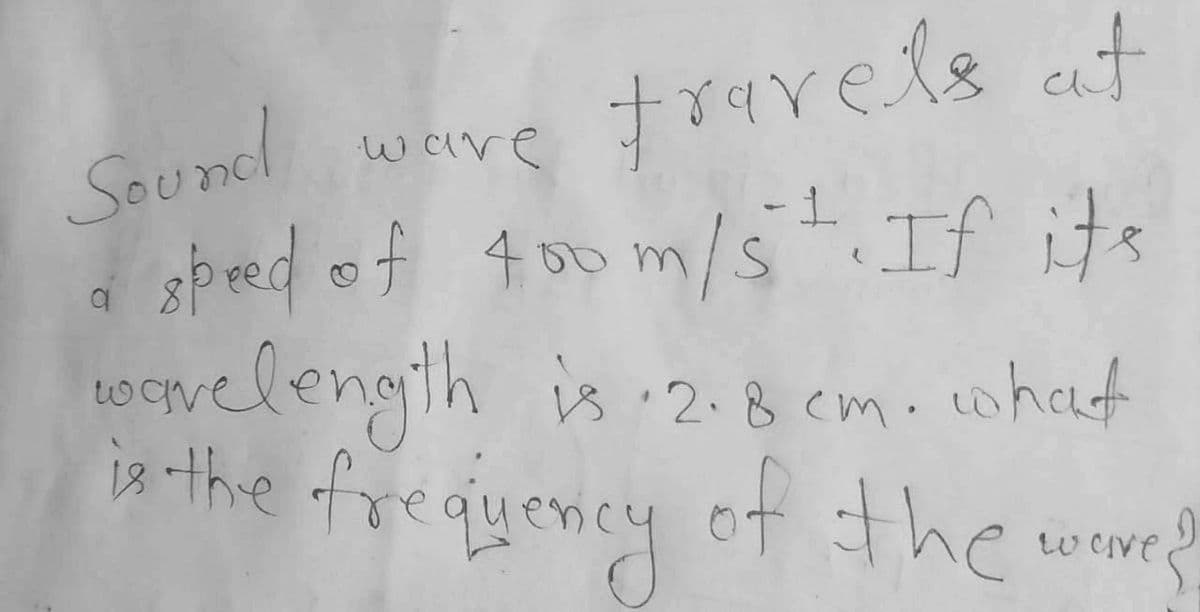 Sound wave travels at
a speed of 400 m/s⁻¹. If its
wavelength is 2.8 cm. what
is the frequency of the wave?